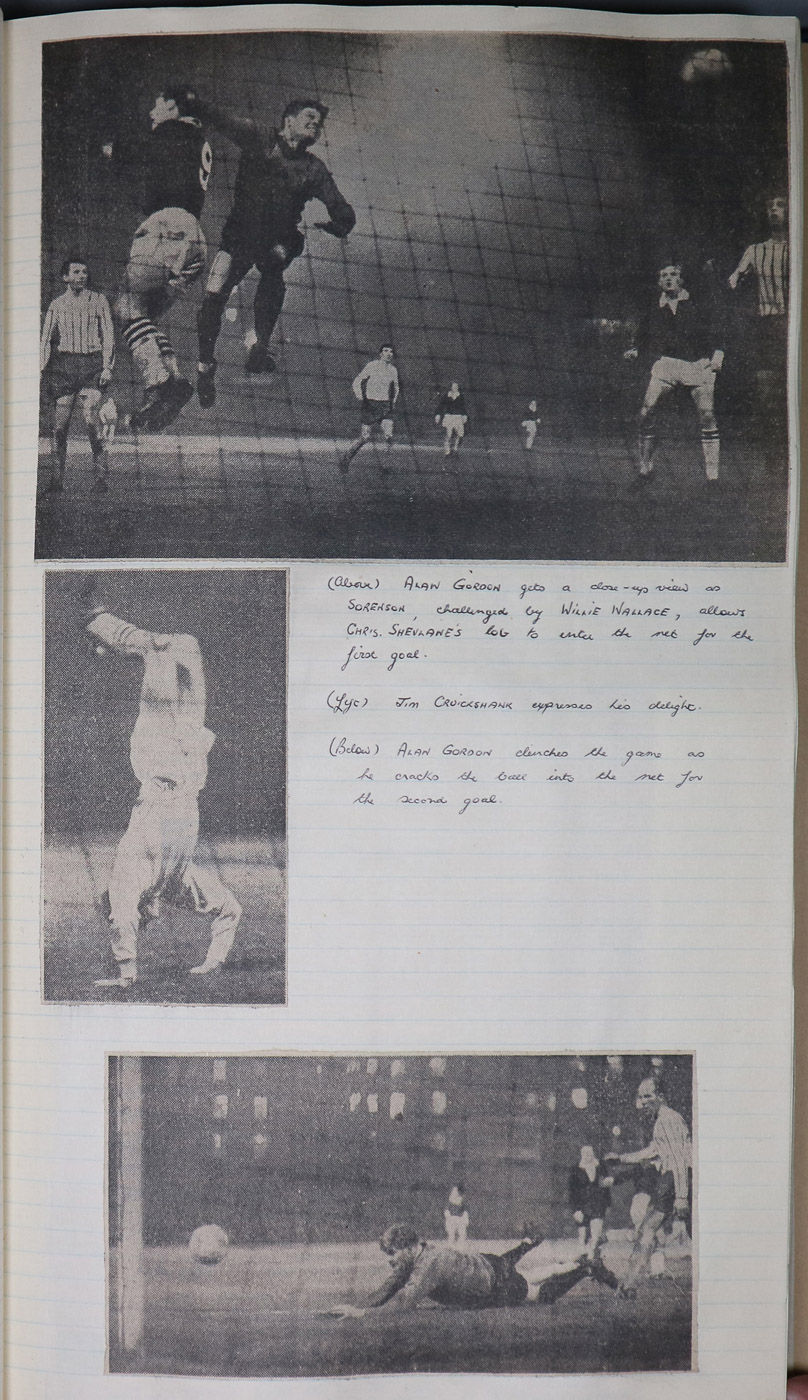 9
(Above) ALAN GORDON gets a close-up view as
SORENSON, challenged by WILLIE WALLACE, allows
CHRIS. SHEVLANE'S lob to enter the net for the
first goal.
(Left) JIM CRUICKSHANK expresses his delight.
(Below) ALAN GORDON clenches the game as
he cracks the ball into the net for
the second goal.